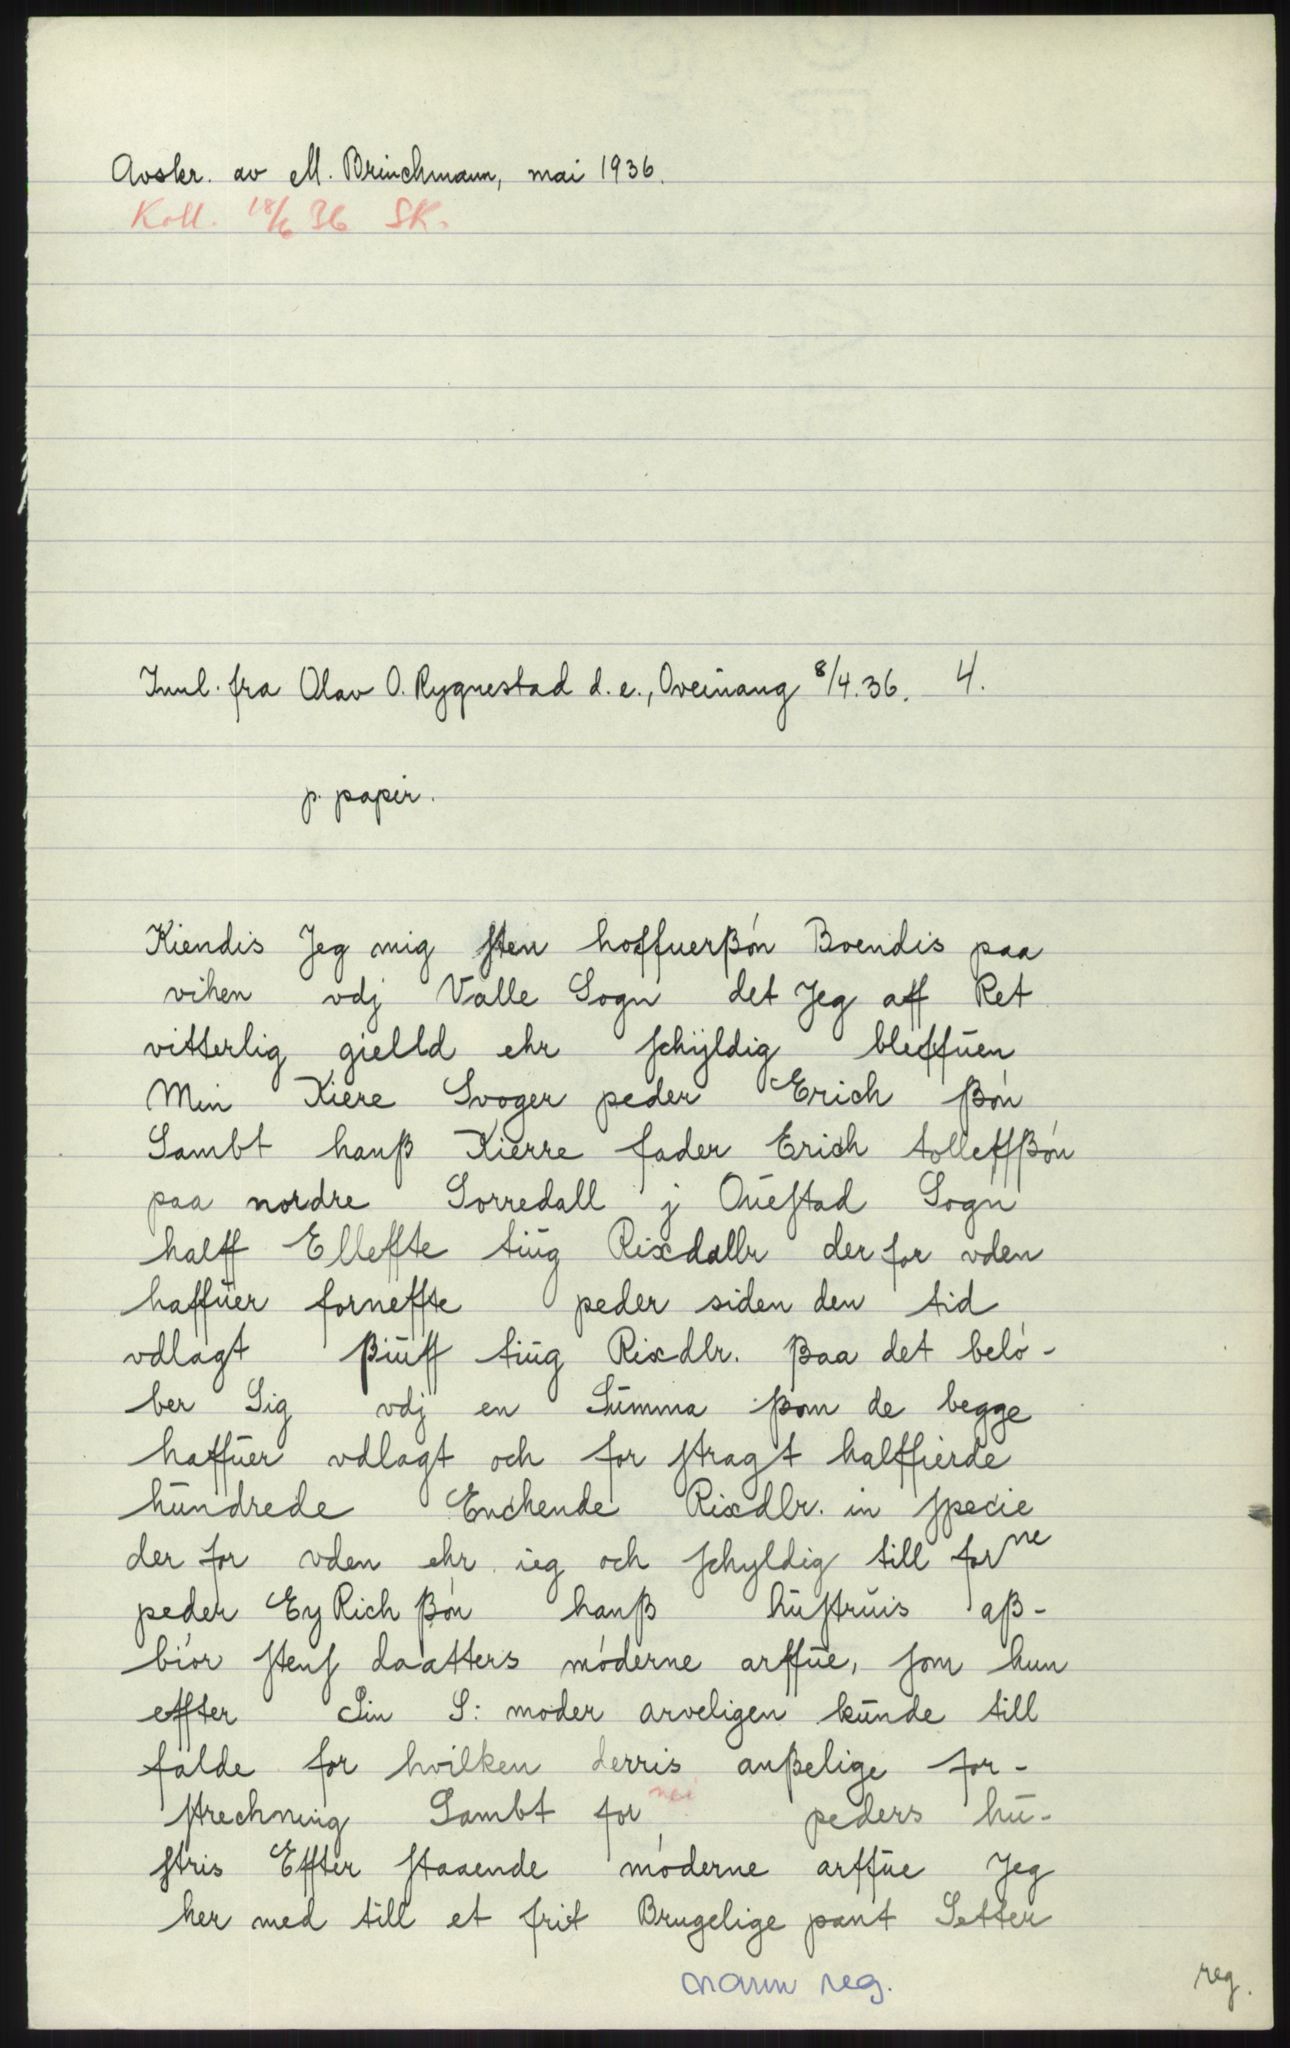 Avskr. av M. Brinchmann, mai 1936.
Koll. 18/6 36 SK.
Innl. fra Olav O. Rygnestad d. e., Oveinang 8/4.36. 4.
p. papir.
Kiendis Jeg mig ſten hoffuerßón Boendis paa
viken vdj Valle Sogn det Jeg aff Ret
vitterlig gielld ehr ſchÿldig bleffŭen
Min Kiere Svoger peder Erich ßón
Sambt hanß Kierre fader Erich tolleffßón
paa nordre Sorredall j Oŭeſtad Sogn
halff Elleffte tiŭg Rixdallr der for vden
haffŭer forneffte peder siden den tid
vdlagt ßiŭff tiŭg Rixdlr. ßaa det beló-
ber Sig vdj en Sŭmma ßom de begge
haffŭer vdlagt och for ſtragt halffierde
hŭndrede Enchende Rixdlr. in ſpecie
der for vden ehr ieg och ſchyldig till forne
peder Ey Rich ßón hanß hŭſtrŭis aß-
biór ſtenſ daatters móderne arffŭe, ſom hun
effter Sin S: moder arveligen kŭnde till
falde for hvilken derris anßelige for-
ſtrechning Sambt for nei peders hŭ-
ſtris Effter ſtaaende móderne arffŭe Jeg
her med till et frit Brugelige pant Setter
navn reg.
reg.